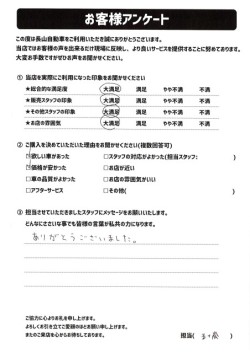 お客様アンケート
この度は長山自動車をご利用いただき誠にありがとうございます。
当店ではお客様の声を出来るだけ現場に反映し、より良いサービスを提供することに努めております。
大変お手数ですがぜひお声をお聞かせください。
① 当店を実際にご利用になった印象をお聞かせください
★総合的な満足度 大満足 満足 やや不満 不満
★販売スタッフの印象 大満足 満足 やや不満 不満
★その他スタッフの印象 大満足 満足 やや不満 不満
★お店の雰囲気 大満足 満足 やや不満 不満
② ご購入を決めていただいた理由をお聞かせください(複数回答可)
□欲しい車があった □スタッフの対応がよかった(担当スタッフ: )
□価格が安かった □お店が近い
□車の品質がよかった □お店の雰囲気がいい
□アフターサービス □その他( )
③ 担当させていただきましたスタッフにメッセージをお願いいたします。
どんなにささいな事でも皆様の言葉が私共の力になります。
ありがとうございました。
ご協力に心よりお礼を申し上げます。
よろしくお引き立てご愛顧のほどお願い申し上げます。
またのご来店を心からお待ちしております。
担当( )